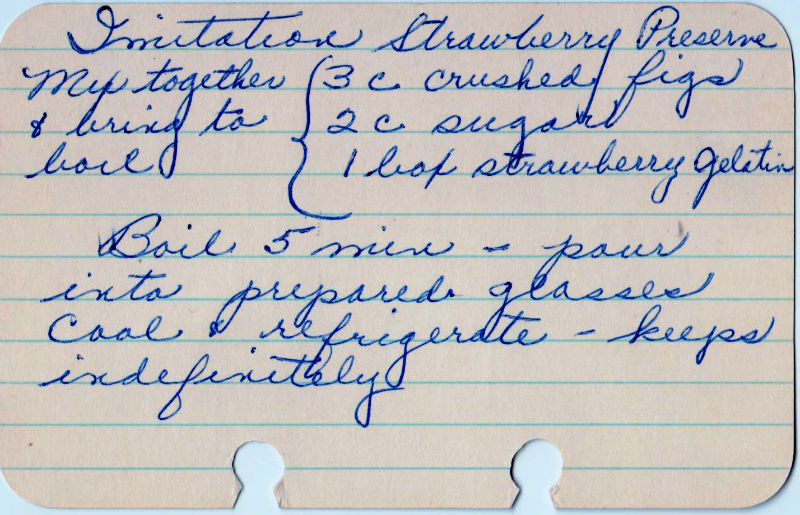 Imitation Strawberry Preserve
Mix together { 3 c crushed figs
& bring to 2 c sugar
boil 1 box strawberry gelatin
Boil 5 min - pour
into prepared glasses
Cool & refrigerate - keeps
indefinitely